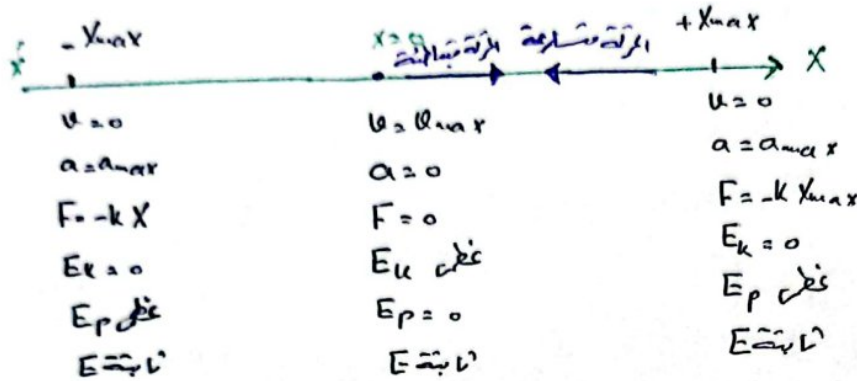 - Xmax
x = 0
+ Xmax
الحركة متباطئة
الحركة متسارعة
x'
X
v = 0
a = amax
F = -k X
Ek = 0
Ep عظمى
E ثابتة
v = vmax
a = 0
F = 0
Ek عظمى
Ep = 0
E ثابتة
v = 0
a = amax
F = -k Xmax
Ek = 0
Ep عظمى
E ثابتة